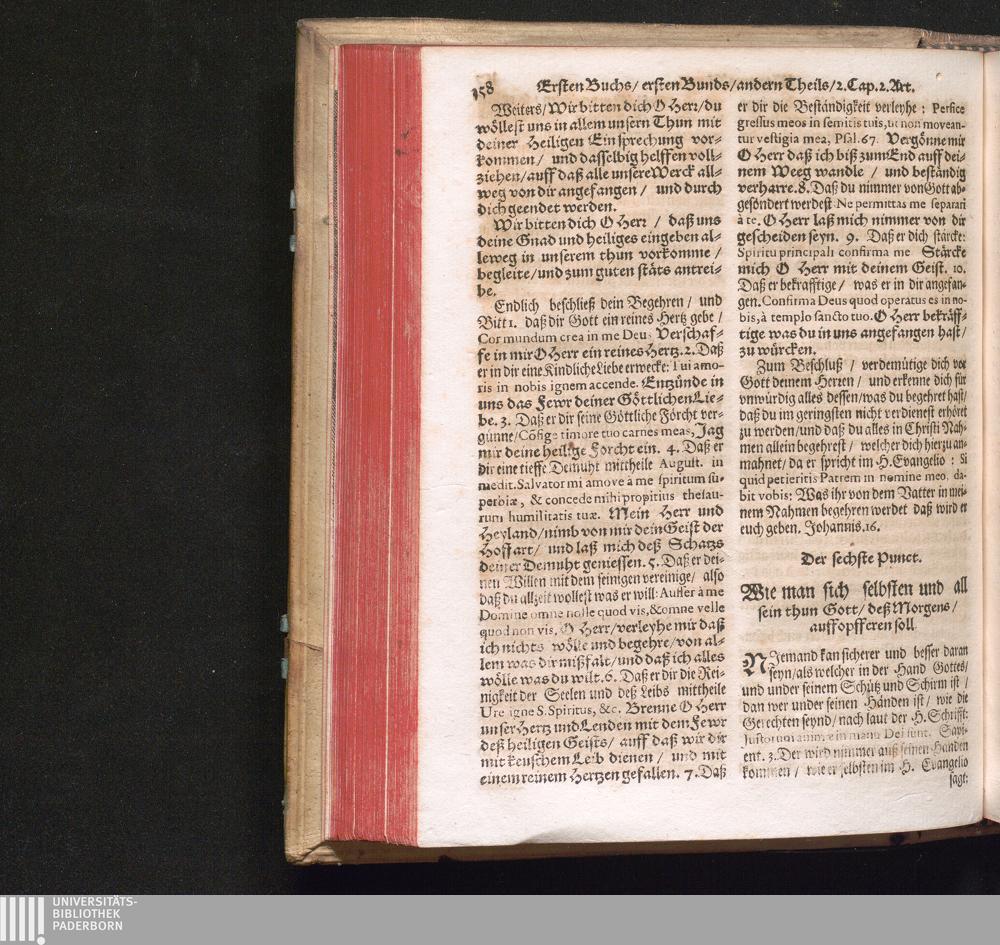 158 Ersten Buchs/ ersten Bunds/ andern Theils/ 2. Cap. 2. Art.
Weiters/ Wir bitten dich O Herr/ du
wöllest uns in allem unsern Thun mit
deiner Heiligen Einsprechung vor-
kommen/ und dasselbig helffen voll-
ziehen/ auff daß alle unsere Werck all-
weg von dir angefangen/ und durch
dich geendet werden.
Wir bitten dich O Herr/ daß uns
deine Gnad und heiliges eingeben al-
leweg in unserem thun vorkomme/
begleite/ und zum guten stäts antrei-
be.
Endlich beschließ dein Begehren/ und
Bitt 1. daß dir Gott ein reines Hertz gebe/
Cor mundum crea in me Deu. Verschaf-
fe in mir O Herr ein reines Hertz. 2. Daß
er in dir eine Kindliche Liebe erwecke: Tui amo-
ris in nobis ignem accende. Entzünde in
uns das Fewr deiner Göttlichen Lie-
be. 3. Daß er dir seine Göttliche Förcht ver-
günne/ Cõfige timore tuo carnes meas, Jag
mir deine heilige Forcht ein. 4. Daß er
dir eine tieffe Demuht mittheile August. in
medit. Salvator mi amove à me spiritum su-
perbiæ, & concede mihi propitius thesau-
rum humilitatis tuæ. Mein Herr und
Heyland/ nimb von mir dein Geist der
Hoffart/ und laß mich deß Schatzs
deiner Demuht geniessen. 5. Daß er dei-
nen Willen mit dem seinigen vereinige/ also
daß du allzeit wollest was er will: Auffer à me
Domine omne nolle quod vis, & omne velle
quod non vis, O Herr/ verleyhe mir daß
ich nichts wölle und begehre/ von al-
lem was dir mißfalt/ und daß ich alles
wölle was du wilt. 6. Daß er dir die Rei-
nigkeit der Seelen und deß Leibs mittheile
Ure igne S. Spiritus, &c. Brenne O Herr
unser Hertz und Lenden mit dem Fewr
deß heiligen Geists/ auff daß wir dir
mit keuschem Leib dienen/ und mit
einem reinem Hertzen gefallen. 7. Daß
er dir die Beständigkeit verleyhe: Perfice
gressus meos in semitis tuis, ut non movean-
tur vestigia mea, Psal. 67. Vergönne mir
O Herr daß ich biß zum End auff dei-
nem Weeg wandle/ und beständig
verharre. 8. Daß du nimmer von Gott ab-
gesöndert werdest Ne permittas me separari
à te, O Herr laß mich nimmer von dir
gescheiden seyn. 9. Daß er dich stärcke:
Spiritu principali confirma me Stärcke
mich O Herr mit deinem Geist. 10.
Daß er bekrafftige/ was er in dir angefan-
gen. Confirma Deus quod operatus es in no-
bis, à templo sancto tuo. O Herr bekräff-
tige was du in uns angefangen hast/
zu würcken.
Zum Beschluß/ verdemütige dich vor
Gott deinem Herren/ und erkenne dich für
unwürdig alles dessen/ was du begehret hast/
daß du im geringsten nicht verdienest erhöret
zu werden/ und daß du alles in Christi Nah-
men allein begehrest/ welcher dich hierzu an-
mahnet/ da er spricht im H. Evangelio: Si
quid petieritis Patrem in nomine meo, da-
bit vobis: Was ihr von dem Vatter in mei-
nem Nahmen begehren werdet daß wird er
euch geben. Johannis. 16.
Der sechste Punct.
Wie man sich selbsten und all
sein thun Gott/ deß Morgens/
auffopfferen soll
NJemand kan sicherer und besser daran
seyn/ als welcher in der Hand Gottes/
und under seinem Schütz und Schirm ist/
dan wer under seinen Händen ist/ wie die
Gerechten seynd/ nach laut der H. Schrifft:
Justorum animæ in manu Dei sunt. Sapi-
ent. 3. Der wird nimmer auß seinen Händen
kommen/ wie er selbsten im H. Evangelio
sagt:
UNIVERSITÄTS-
BIBLIOTHEK
PADERBORN